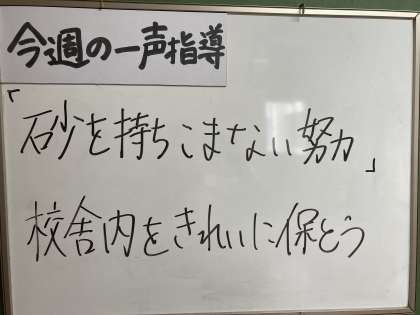 今週の一声指導
「砂を持ちこまない努力」
校舎内をきれいに保とう